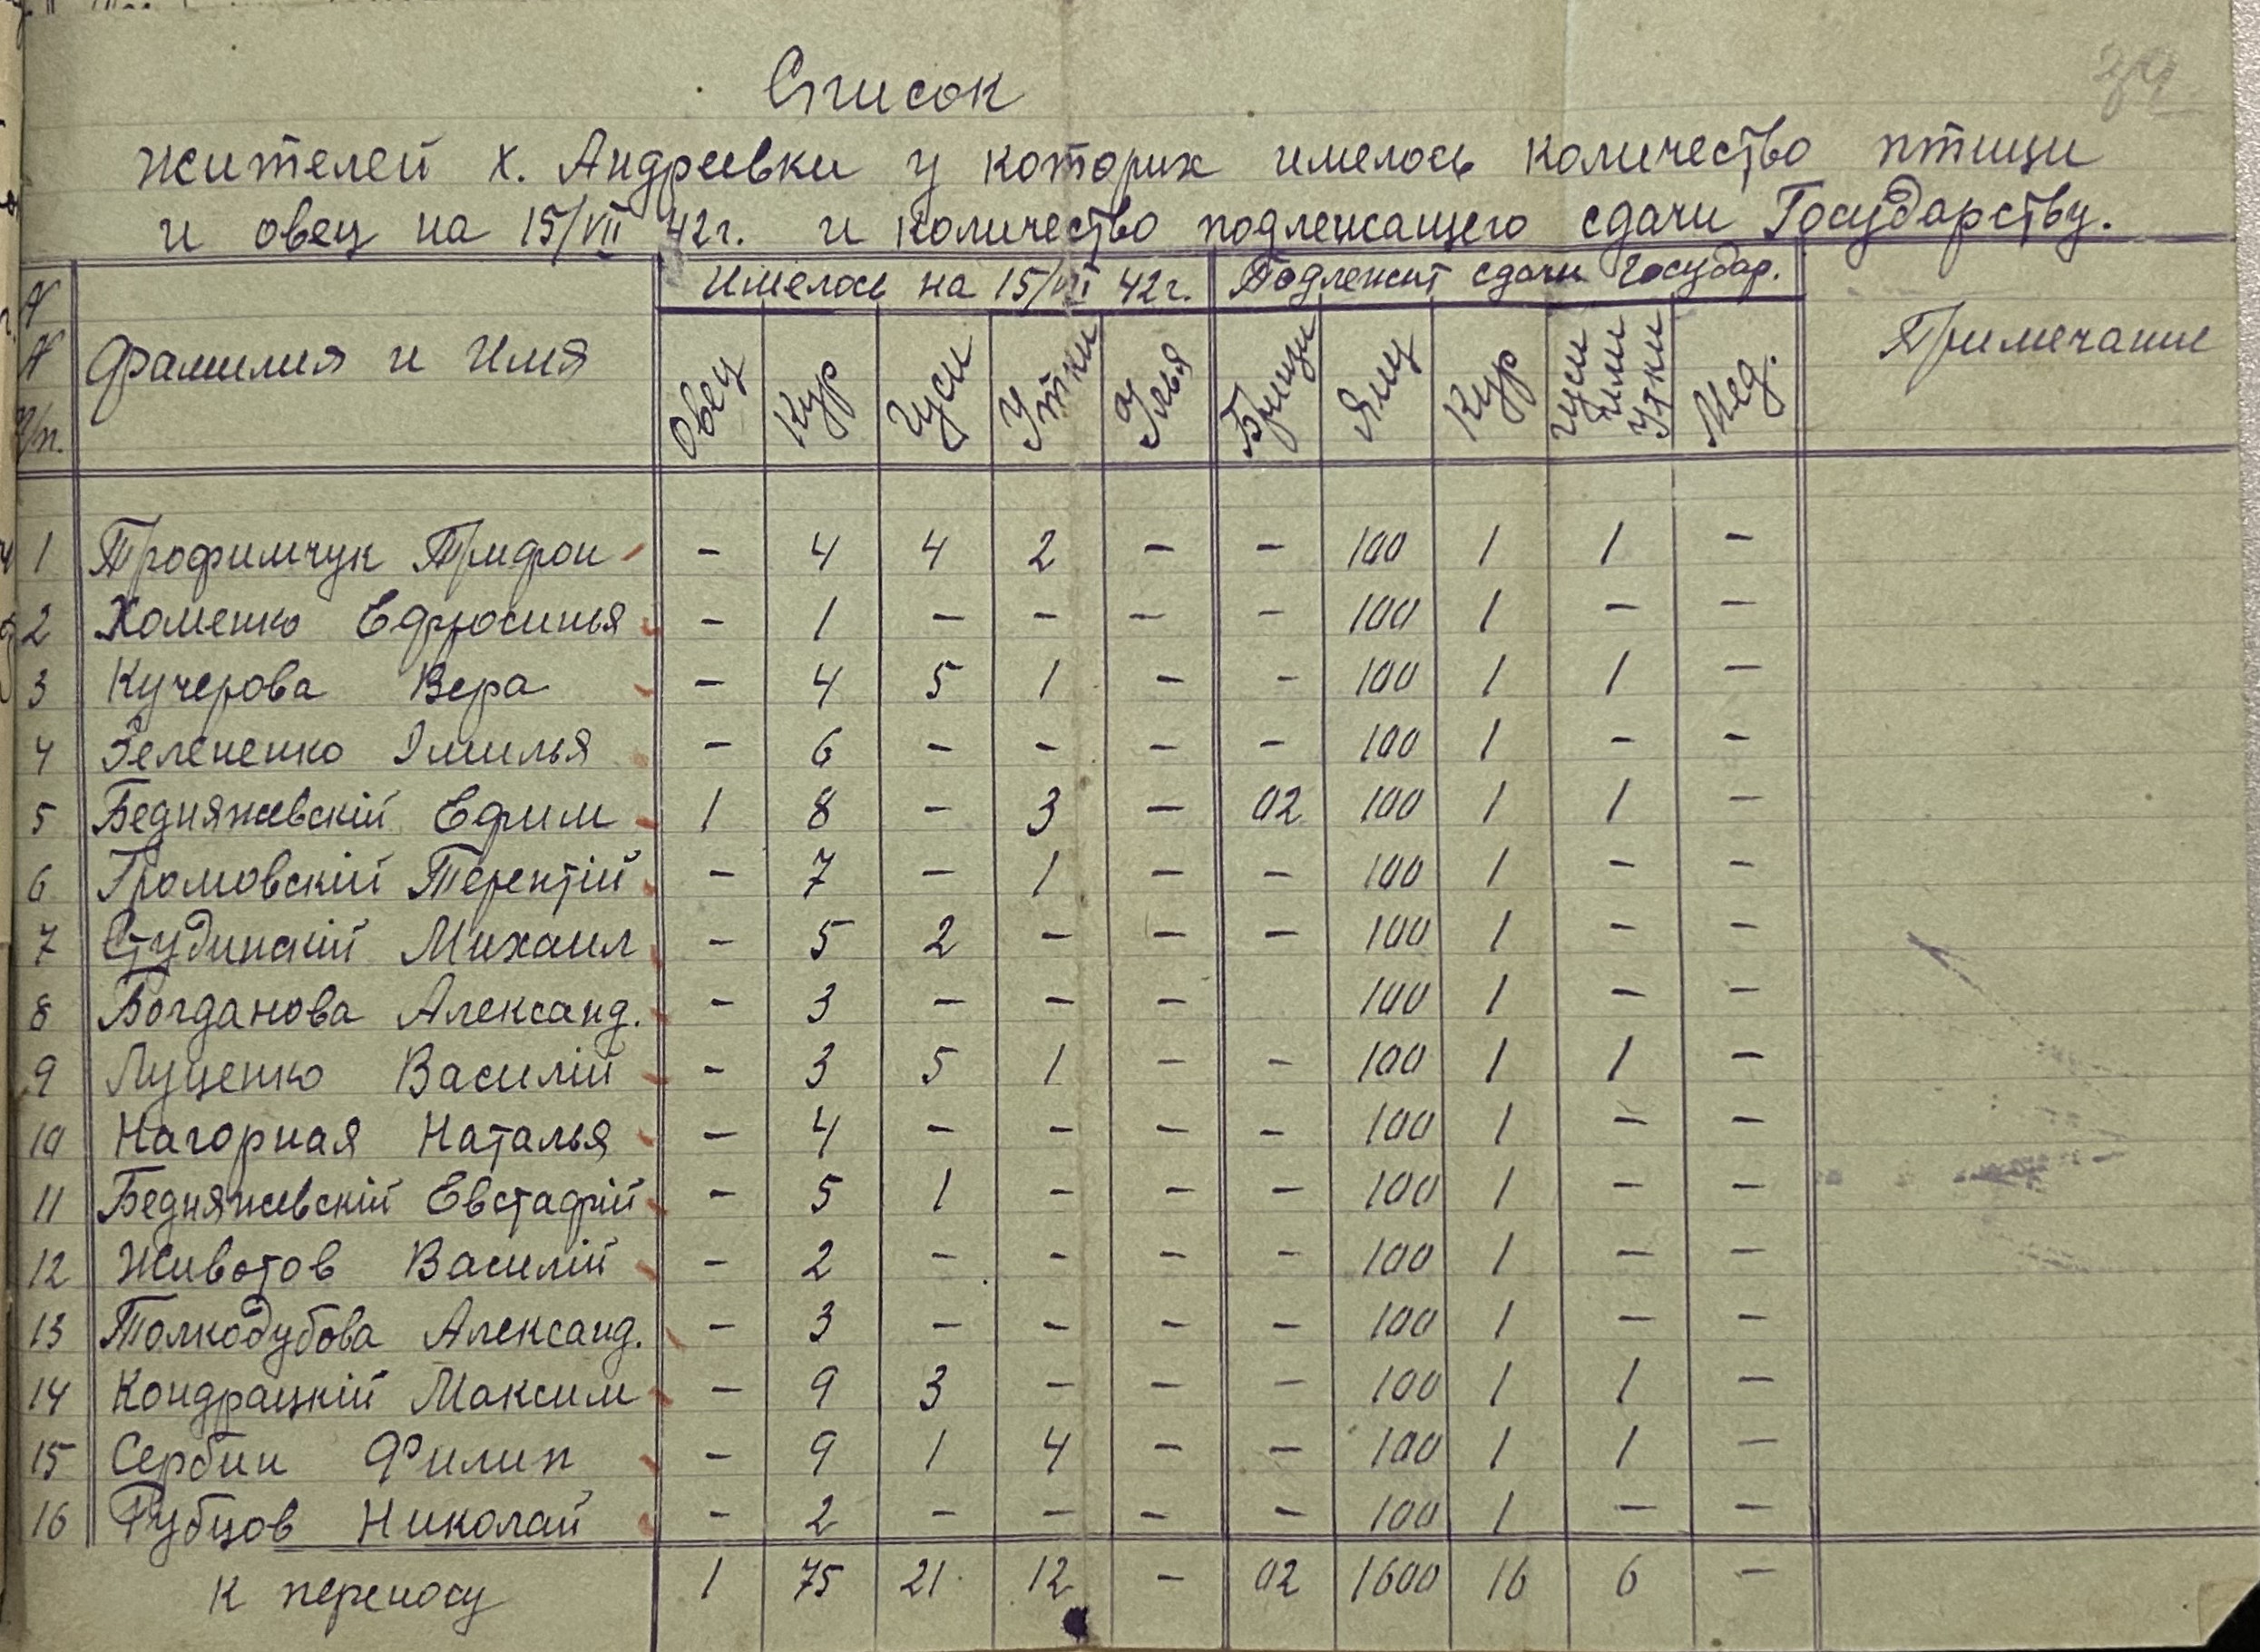 39
Список
жителей х. Андреевки у которих имелось количество птици
и овец на 15/VII 42г. и количество подлежащего сдачи Государству.
N N п/п. | Фамилия и Имя | Имелось на 15/VII 42г. | Подлежит сдачи Государ. | Примечание
Овец | Кур | Гуси | Утки | Улья | Бринзи | Яиц | Кур | Гуси или Утки | Мед.
1 Трофимчук Трифон - 4 4 2 - - 100 1 1 -
2 Хоменко Ефросинья - 1 - - - - 100 1 - -
3 Кучерова Вера - 4 5 1 - - 100 1 1 -
4 Зелененко Эмилья - 6 - - - - 100 1 - -
5 Бедняжевскій Ефим 1 8 - 3 - 02 100 1 1 -
6 Громовскій Терентій - 7 - 1 - - 100 1 - -
7 Студинскій Михаил - 5 2 - - - 100 1 - -
8 Богданова Александ. - 3 - - - 100 1 - -
9 Луценко Василій - 3 5 1 - - 100 1 1 -
10 Нагорная Наталья - 4 - - - - 100 1 - -
11 Бедняжевскій Евстафій - 5 1 - - - 100 1 - -
12 Животов Василій - 2 - - - - 100 1 - -
13 Толкодубова Александ. - 3 - - - - 100 1 - -
14 Кондрацкій Максим - 9 3 - - - 100 1 1 -
15 Сербин Филип - 9 1 4 - - 100 1 1 -
16 Рубцов Николай - 2 - - - - 100 1 - -
К переносу 1 75 21 12 - 02 1600 16 6 -